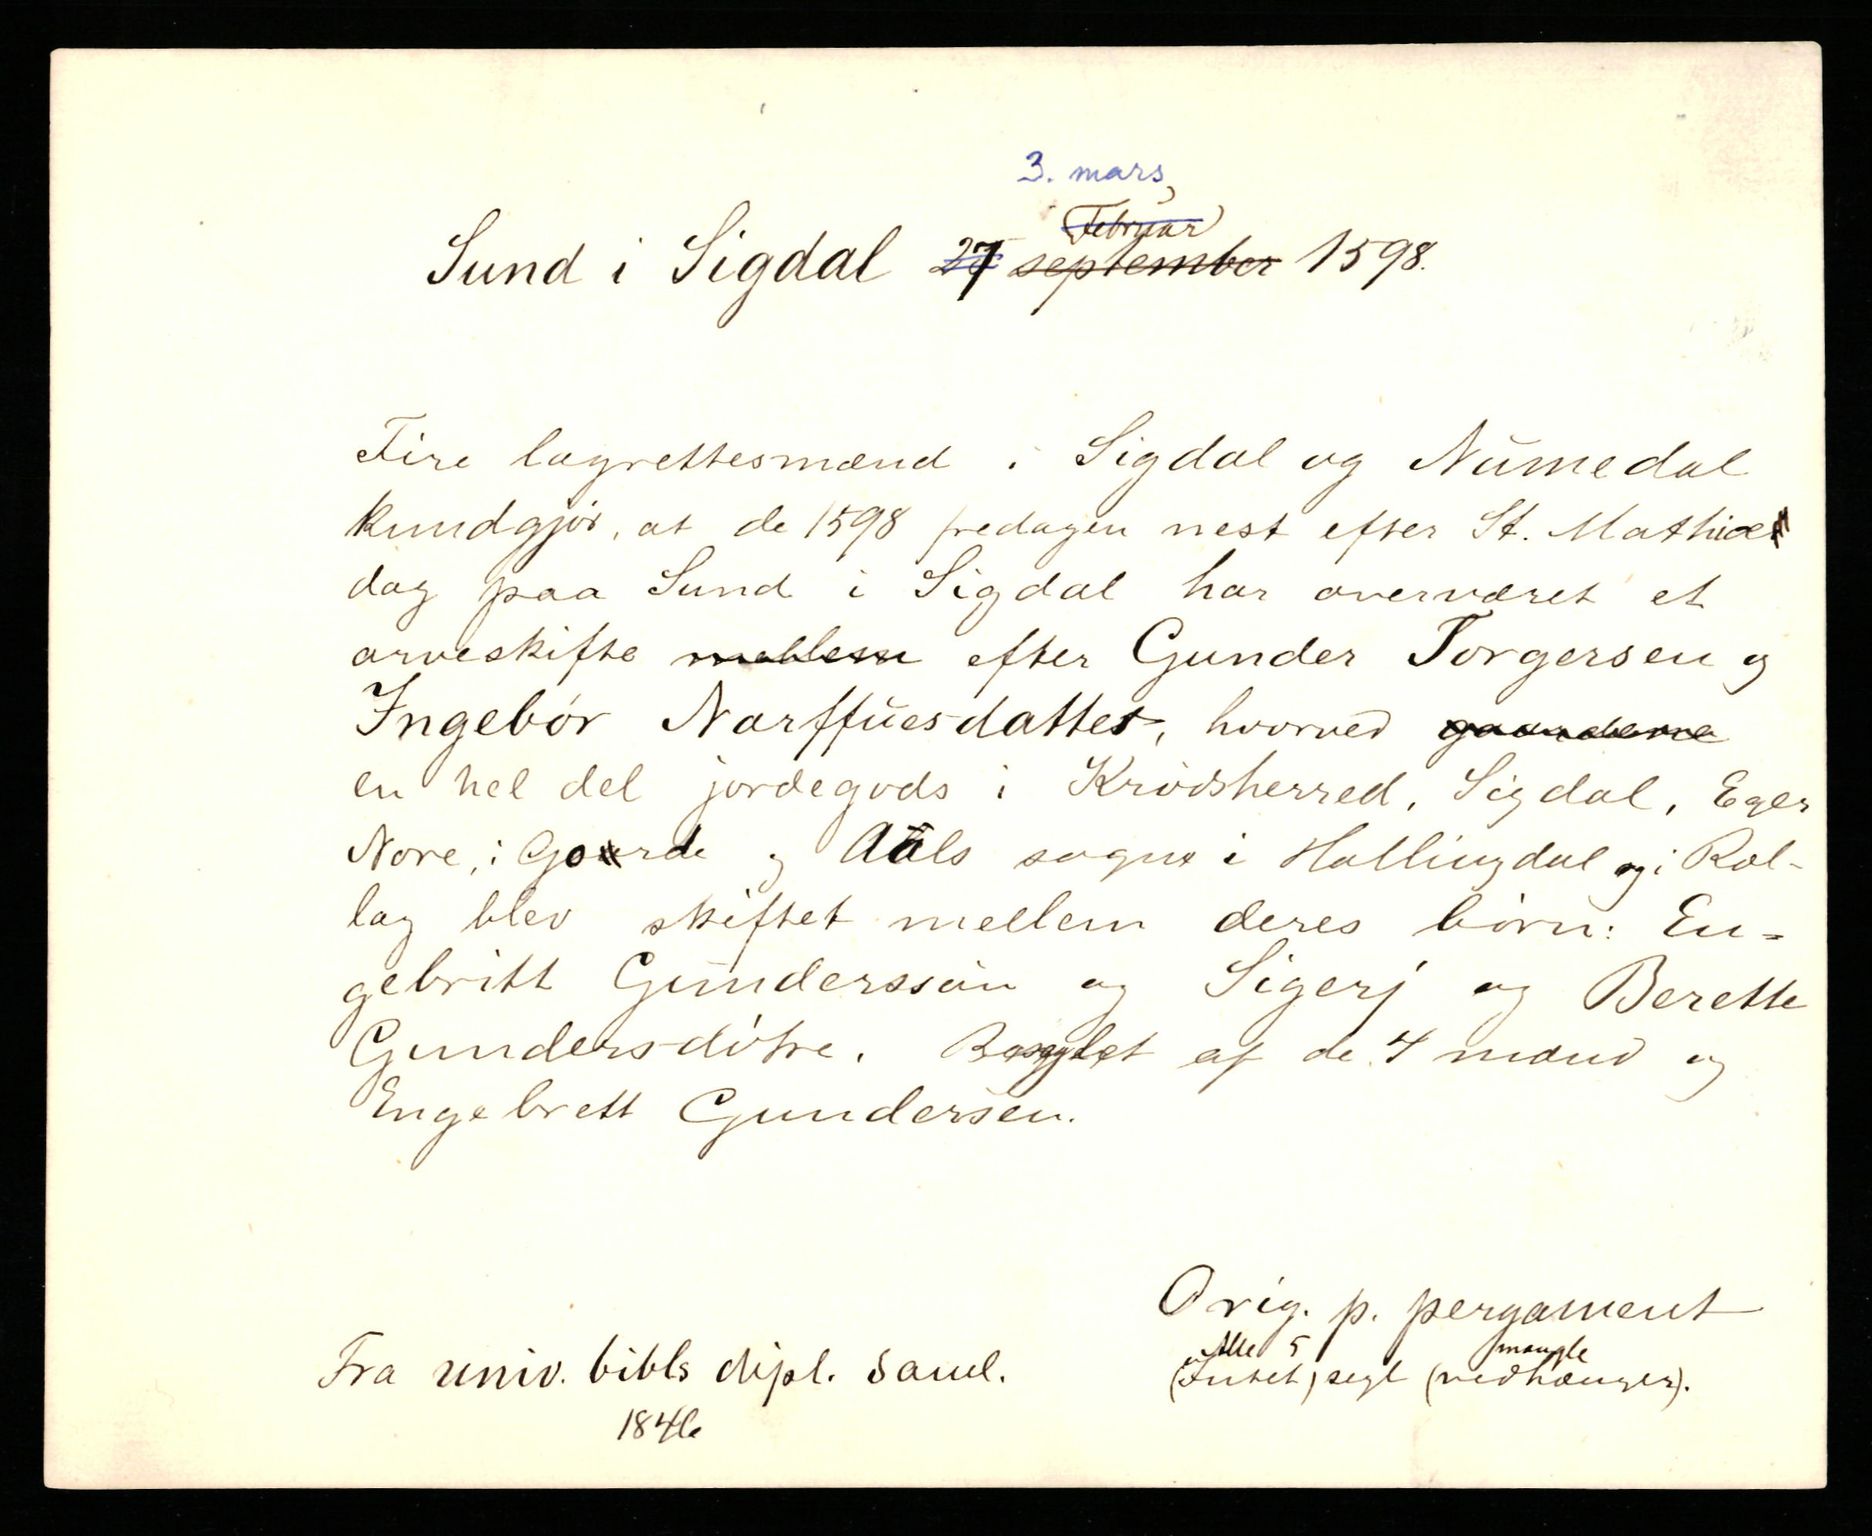 3. mars
Februar
Sund i Sigdal 27 september 1598.
Fire lagrettesmænd i Sigdal og Numedal
kundgjør, at de 1598 fredagen nest efter St. Mathiæ
dag paa Sund i Sigdal har overværet et
arveskifte mellem efter Gunder Torgersen og
Ingebór Narffuesdatter, hvorved gaarderne
en hel del jordegods i Krødsherred, Sigdal, Eger
Nore, i Gorde og Aals sogne i Hallingdal og i Rol-
lag blev skiftet mellem deres børn: En-
gebritt Gunderssøn og Sigerj og Berette
Gundersdøtre. Beseglet af de 4 mænd og
Engebrett Gundersen.
Orig. p. pergament
Alle 5 mangle
(Intet) segl (vedhænger).
Fra univ. bibls dipl. saml.
1846